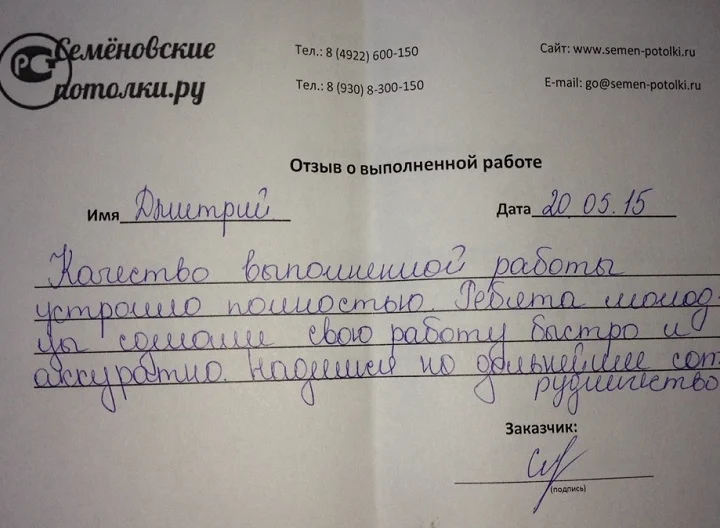 РСТ Семёновские потолки.ру
Тел.: 8 (4922) 600-150
Тел.: 8 (930) 8-300-150
Сайт: www.semen-potolki.ru
E-mail: go@semen-potolki.ru
Отзыв о выполненной работе
Имя Дмитрий Дата 20 05.15
Качество выполненной работы
устроило полностью. Ребята молод-
цы сделали свою работу быстро и
аккуратно. Надеемся на дальнейшее сот-
рудничество
Заказчик:
(подпись)